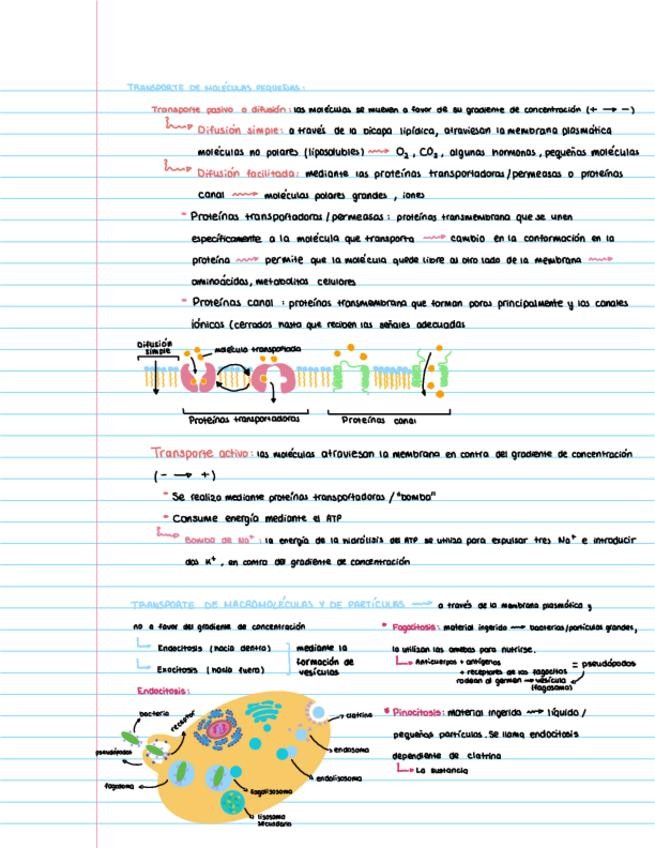 TRANSPORTE DE MOLÉCULAS PEQUEÑAS:
Transporte pasivo o difusión: las moléculas se mueven a favor de su gradiente de concentración (+ → -)
Difusión simple: a través de la bicapa lipídica, atraviesan la membrana plasmática
moléculas no polares (liposolubles) → O₂, CO₂, algunas hormonas, pequeñas moléculas
Difusión facilitada: mediante las proteínas transportadoras/permeasas o proteínas
canal → moléculas polares grandes, iones
- Proteínas transportadoras/permeasas: proteínas transmembrana que se unen
específicamente a la molécula que transporta → cambio en la conformación en la
proteína → permite que la molécula quede libre al otro lado de la membrana →
aminoácidos, metabolitos celulares
- Proteínas canal: proteínas transmembrana que forman poros principalmente y los canales
iónicos (cerrados hasta que reciben las señales adecuadas
Difusión simple
molécula transportada
Proteínas transportadoras
Proteínas canal
Transporte activo: las moléculas atraviesan la membrana en contra del gradiente de concentración
(- → +)
- Se realiza mediante proteínas transportadoras / "bomba"
- Consume energía mediante el ATP
Bomba de Na⁺: la energía de la hidrólisis del ATP se utiliza para expulsar tres Na⁺ e introducir
dos K⁺, en contra del gradiente de concentración
TRANSPORTE DE MACROMOLÉCULAS Y DE PARTÍCULAS → a través de la membrana plasmática y
no a favor del gradiente de concentración
Endocitosis (hacia dentro)
Exocitosis (hacia fuera)
mediante la
formación de
vesículas
• Fagocitosis: material ingerido → bacterias/partículas grandes,
la utilizan las amebas para nutrirse.
Anticuerpos + antígenos
+ receptores de los fagocitos = pseudópodos
rodean al germen → vesícula
(fagosoma)
Endocitosis:
bacteria
receptor
pseudópodos
fagosoma
clatrina
endosoma
endolisosoma
fagolisosoma
lisosoma
secundario
• Pinocitosis: material ingerido → líquido/
pequeñas partículas. Se llama endocitosis
dependiente de clatrina
La sustancia